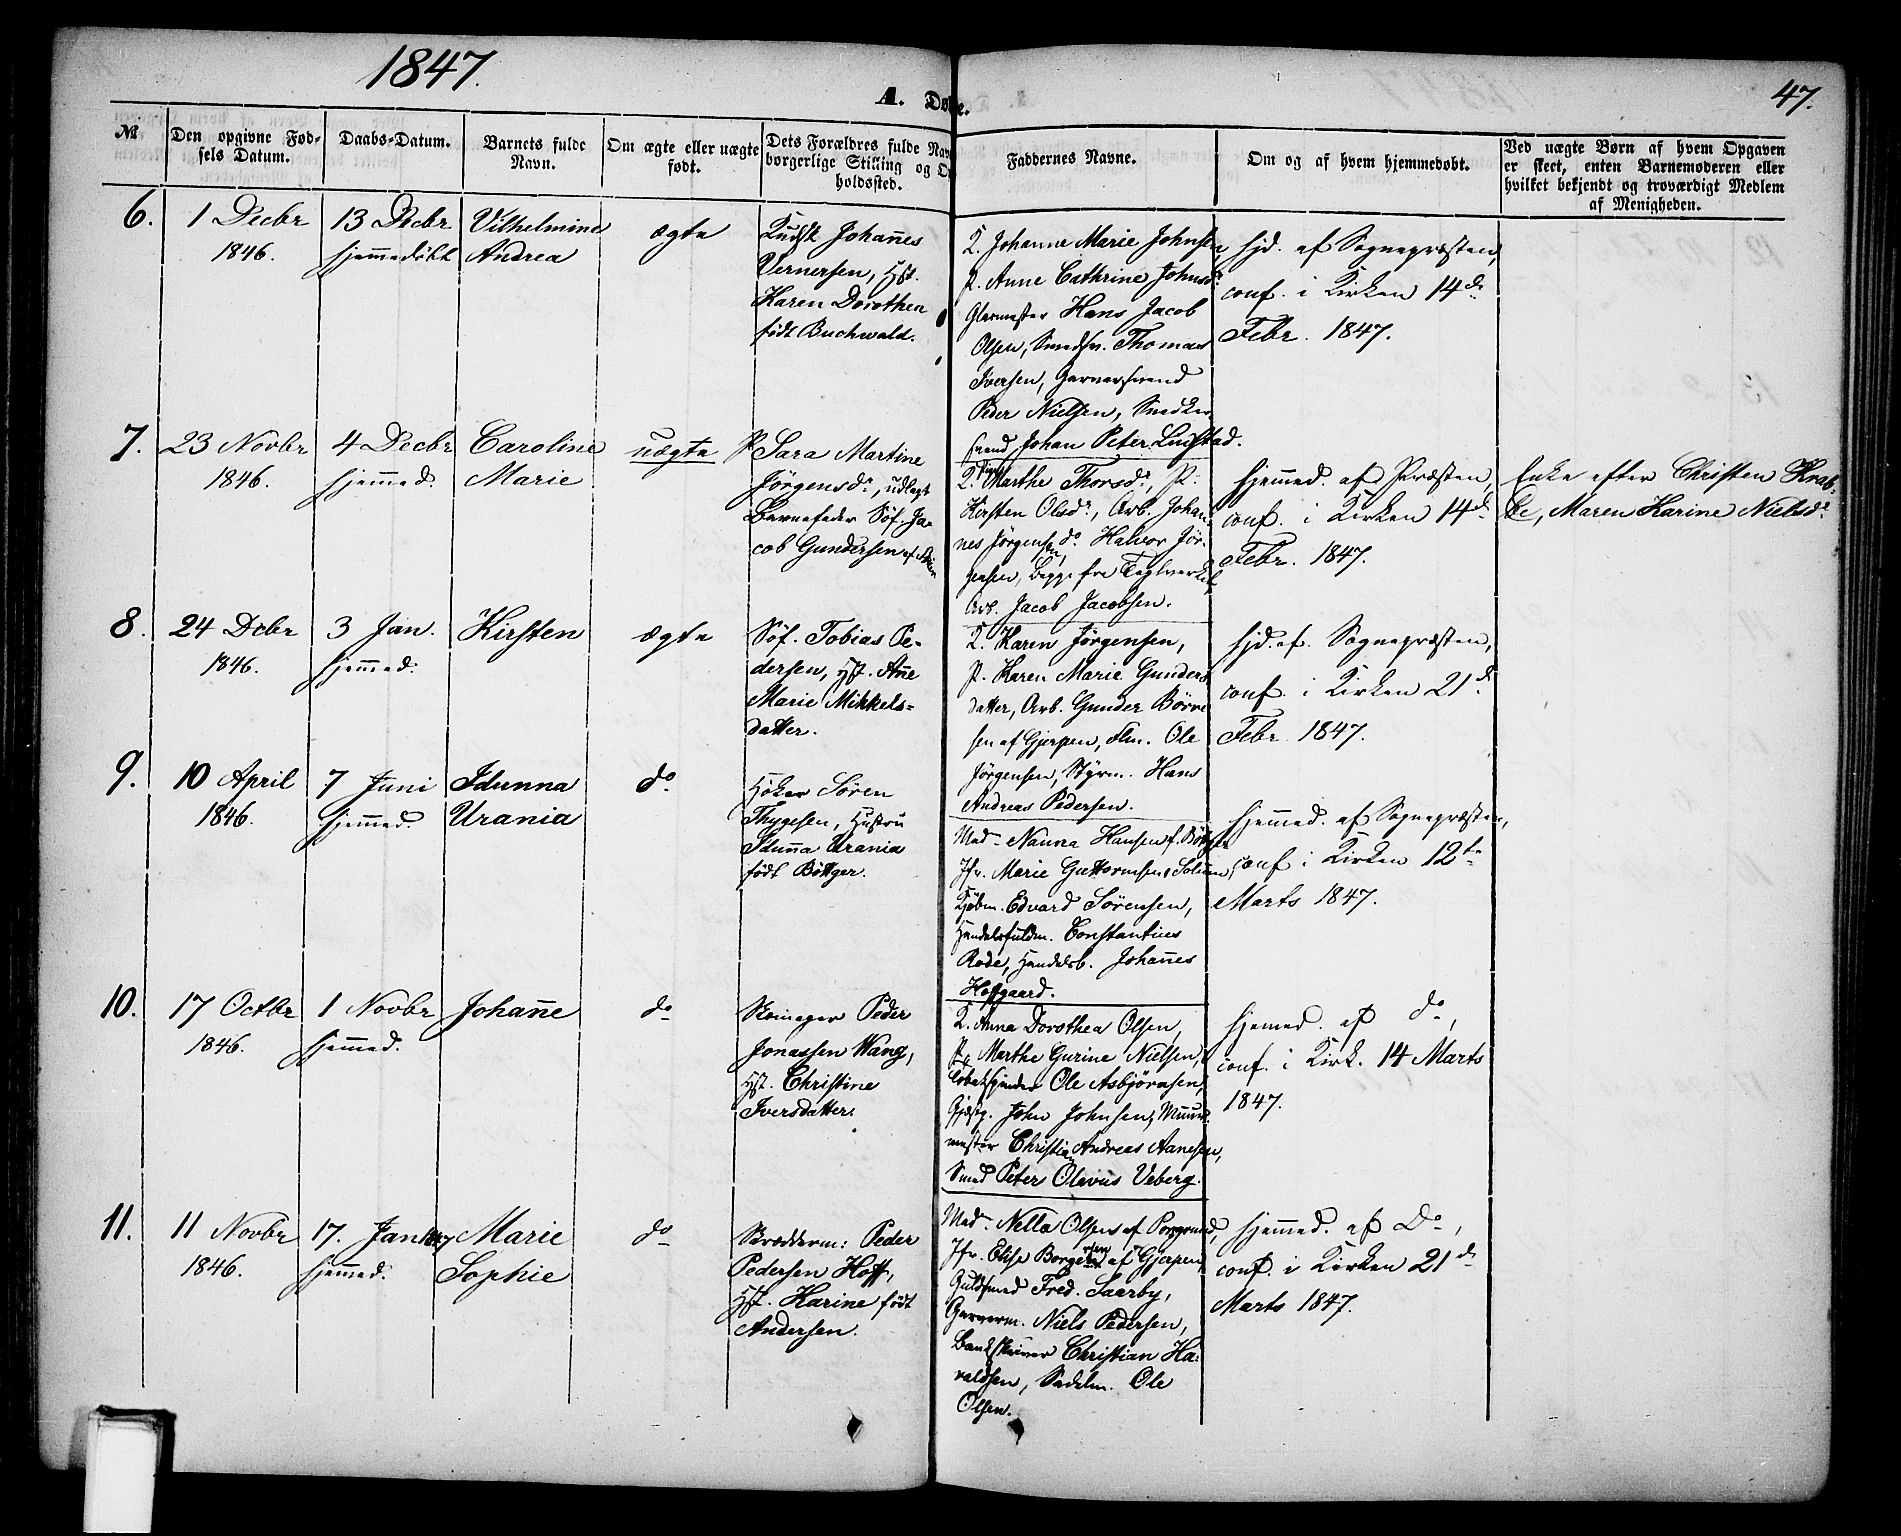 1847.
47.
A. Døbte.
№
Den opgivne Fød-
sels Datum.
Daabs-Datum.
Barnets fulde
Navn.
Om ægte eller uægte
født.
Dets Forældres fulde Nav
borgerlige Stilling og O
holdssted.
Faddernes Navne.
Om og af hvem hjemmedøbt.
Ved uægte Børn af hvem Opgaven
er skeet, enten Barnemoderen eller
hvilket bekjendt og troværdigt Medlem
af Menigheden.
6.
1 Decbr
1846.
13 Decbr
hjemmedøbt
Vilhelmine
Andrea
ægte
Kudsk Johannes
Vernersen, Hst.
Karen Dorothea
født Buchwald.
K. Johanne Marie Johnsen
P. Anne Cathrine Johnsdr
Glarmester Hans Jacob
Olsen, Smedsv. Thomas
Iversen, Garversvend
Peder Nielsen, Snedker-
svend Johan Peter Lindstad.
hjd. af Sognepræsten,
conf. i Kirken 14de
Febr. 1847.
7.
23 Novbr
1846.
4 Decbr
hjemmed.
Caroline
Marie
uægte
P. Sara Martine
Jörgensdr, udlagt
Barnefader Söf. Ja-
cob Gundersen af
K. Marthe Thorsdr, P.
Kirsten Olsdr, Arb. Johan-
nes Jörgensen, do Halvor Jör-
gensen, begge fra Teglverket,
Arb. Jacob Jacobsen.
hjemmed. af Præsten,
conf. i Kirken 14de
Febr. 1847.
Enke efter Christen Krab-
be, Maren Karine Nielsdr
8.
24 Dcbr
1846.
3 Jan.
hjemmed.
Kirsten
ægte
Söf. Tobias Pe-
dersen, Hst. Anne
Marie Mikkels-
datter.
K. Karen Jörgensen,
P. Karen Marie Gunders
datter, Arb. Gunder Börre
sen af Gjerpen, Ole
Jörgensen, Styrm. Hans
Andreas Pedersen.
hjd. af Sognepræsten,
conf. i Kirken 21de
Febr. 1847.
9.
10 April
1846.
7 Juni
hjemmed.
Idunna
Urania
do
Höker Sören
Thygesen, Hustru
Idunna Urania
født Böttger.
Mad. Nanna Hansen f. Böttger
Jfr. Marie Guttormsen, Solum,
Kjöbm. Edvard Sörensen,
Handelsfuldm. Constantius
Rode, Handelsb. Johannes
Hoffgaard.
hjemmed. af Sognepræsten,
conf. i Kirken 12te
Marts 1847.
10.
17 Octbr
1846.
1 Novbr
hjemmed.
Johanne
do
Skomager Peder
Jonassen Wang,
Hst. Christine
Iversdatter.
K. Anna Dorothea Olsen,
P. Marthe Gurine Nielsen,
Tobaksspinder Ole Asbjörnsen,
Gjæstg. John Johnsen, Muur-
mester Christian Andreas Aanesen,
Smed Peter Olavus Ueberg.
hjemmed. af do,
conf. i Kirk. 14 Marts
1847.
11.
11 Novbr
1846.
17. Jan 1847
hjemmed.
Marie
Sophie
do
Skrædderm: Peder
Pedersen Hoff,
Hst. Karine født
Andersen.
Mad. Nella Olsen af Porsgrund,
Jfr. Elise Borgersen af Gjerpen,
Guldsmed Fred. Saarby,
Garverm. Niels Pedersen,
Bankskriver Christian Ha-
raldsen, Sadelm. Ole
Olsen.
hjemmed. af Do,
conf. i Kirken 21de
Marts 1847.